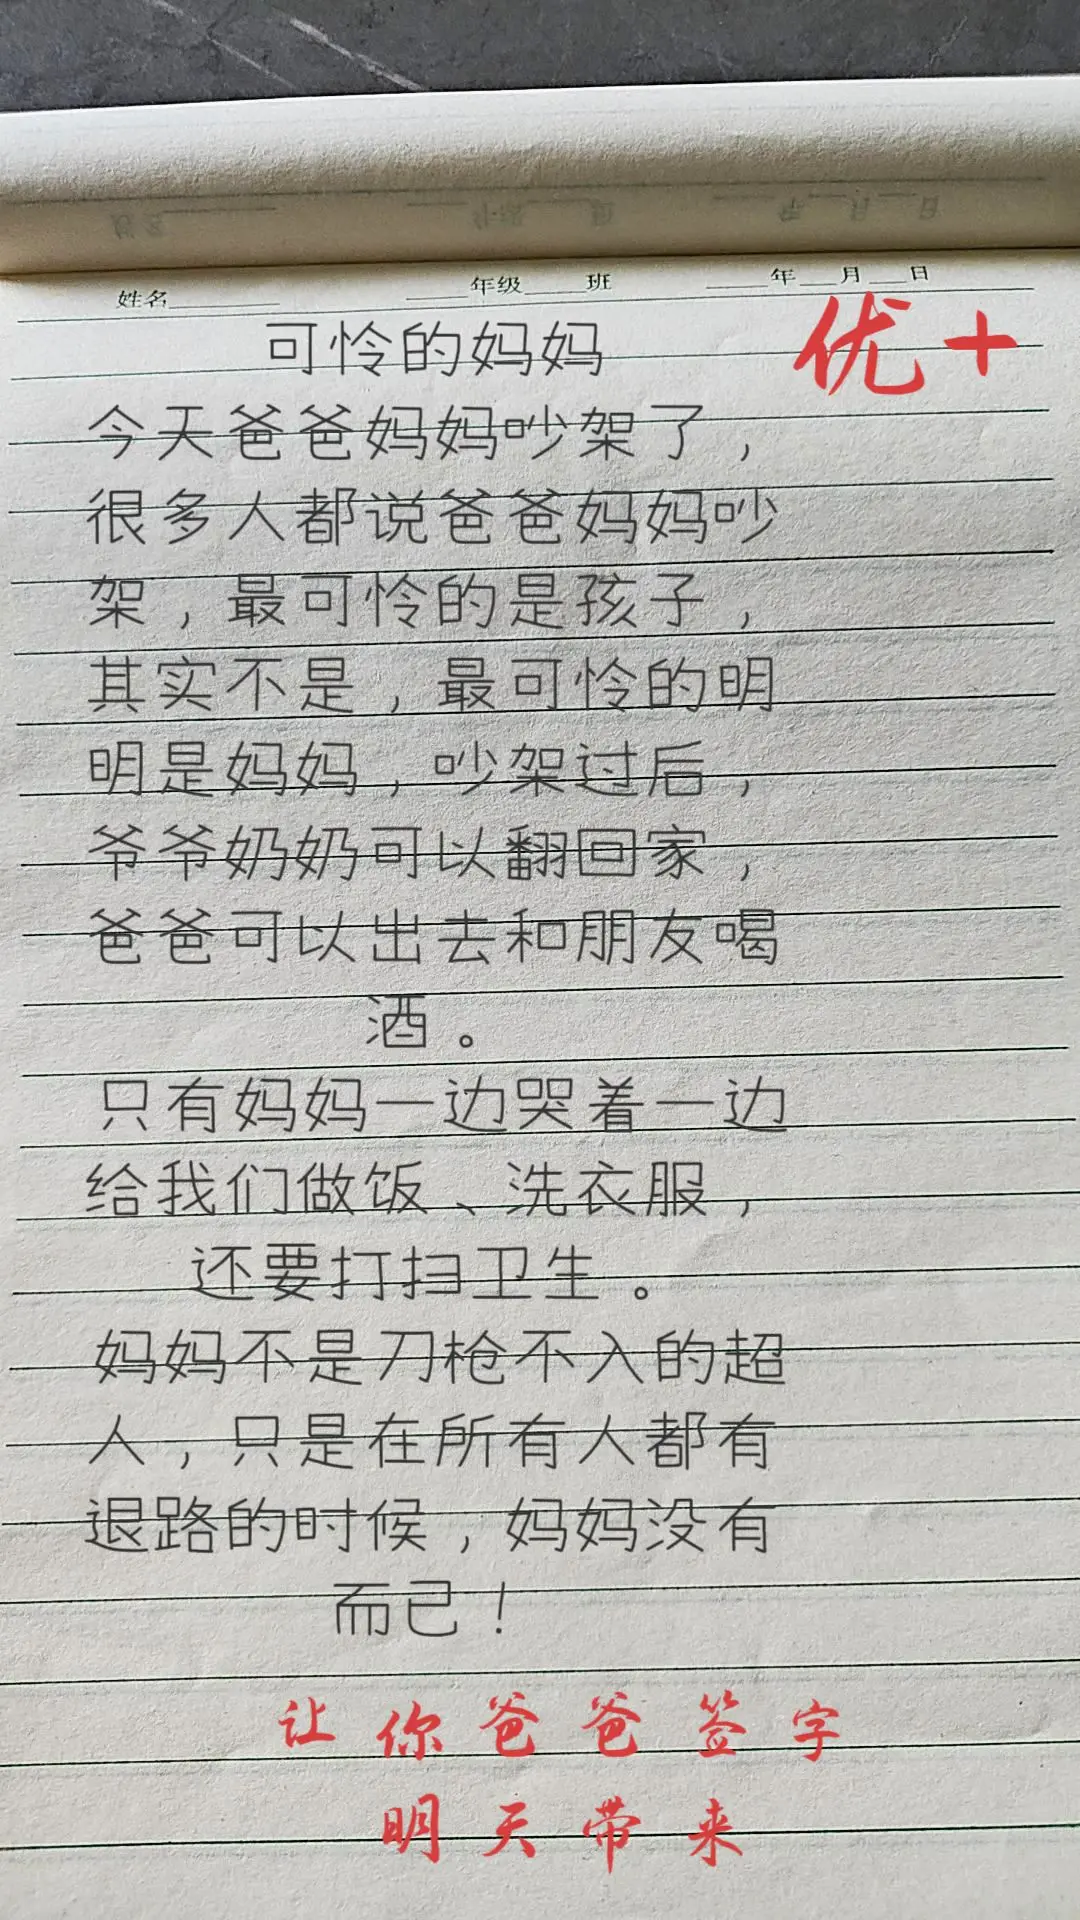 姓名 年级 班 年 月 日
可怜的妈妈
优+
今天爸爸妈妈吵架了，
很多人都说爸爸妈妈吵
架，最可怜的是孩子，
其实不是，最可怜的明
明是妈妈，吵架过后，
爷爷奶奶可以翻回家，
爸爸可以出去和朋友喝
酒。
只有妈妈一边哭着一边
给我们做饭、洗衣服，
还要打扫卫生。
妈妈不是刀枪不入的超
人，只是在所有人都有
退路的时候，妈妈没有
而己！
让你爸爸签字
明天带来